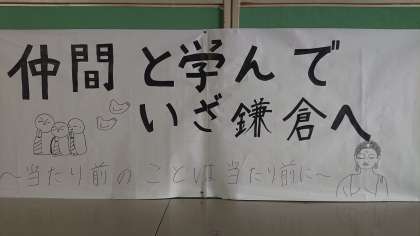 仲間と学んで
いざ鎌倉へ
～当たり前のことは当たり前に～